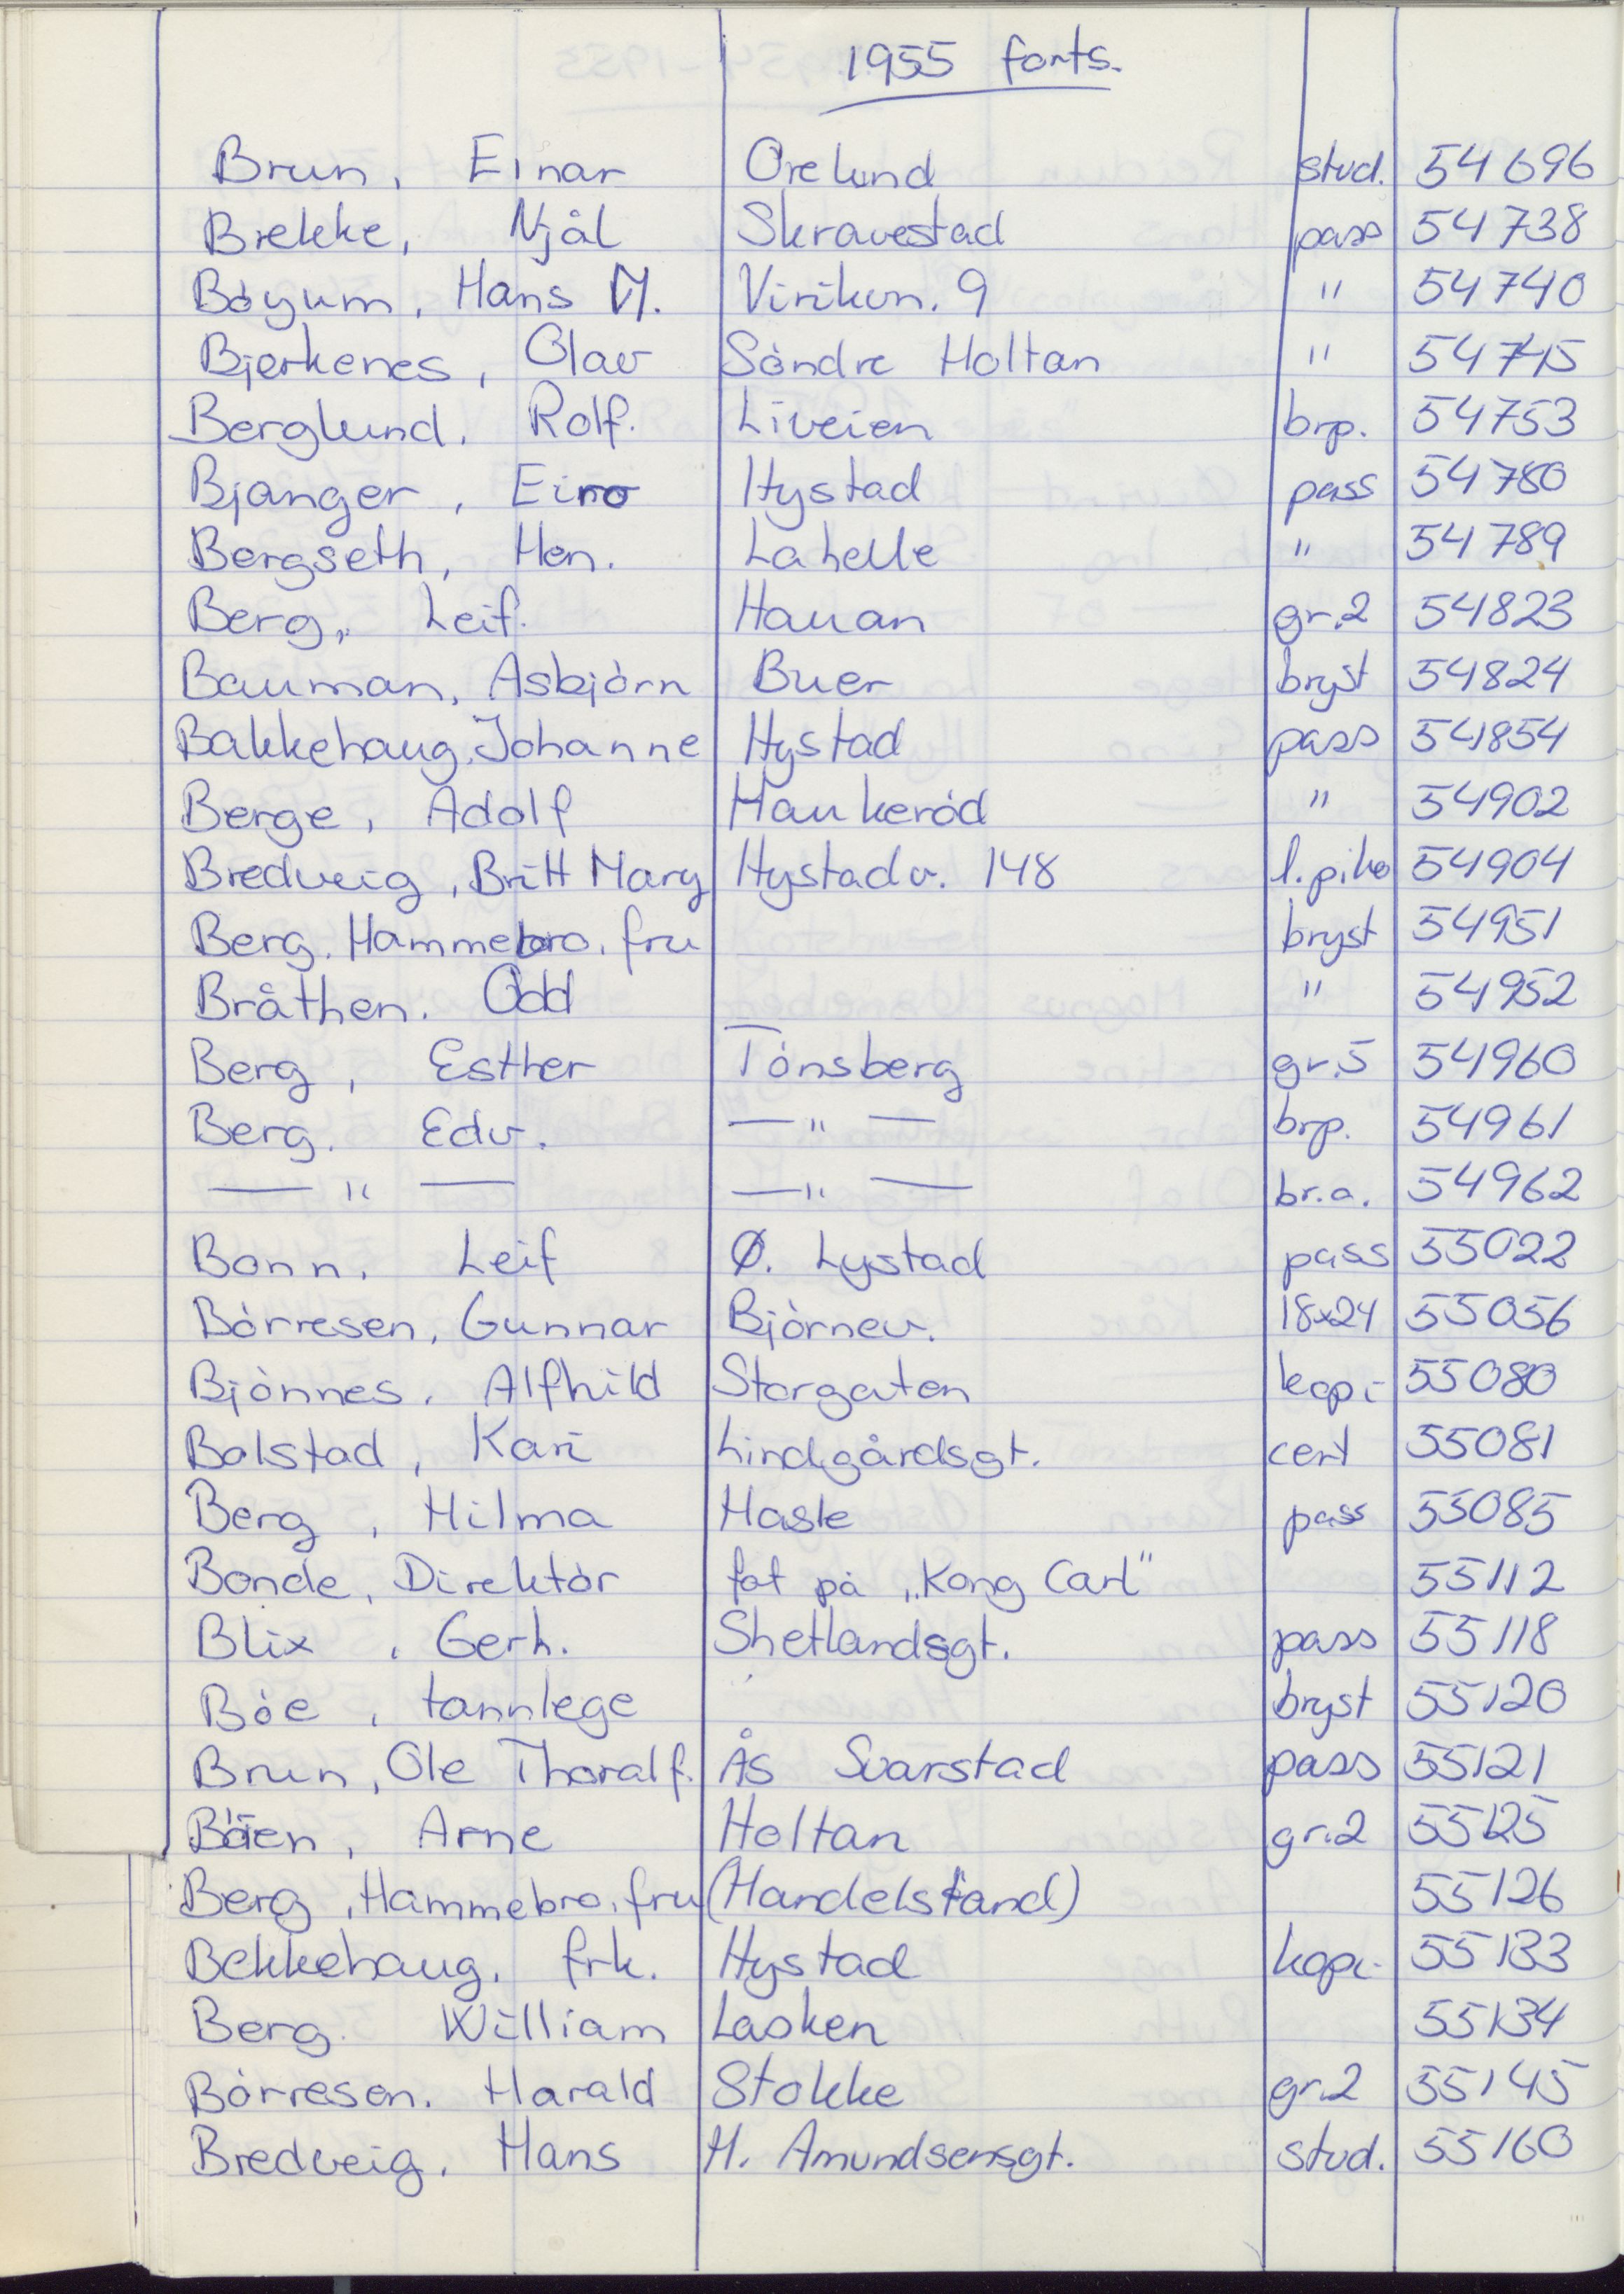 1955 forts.
Brun, Einar Orelund stud. 54696
Brekke, Njål Skravestad pass 54738
Bøyum, Hans M. Virikvn. 9 " 54740
Bjerkenes, Olav Søndre Holtan " 54745
Berglund, Rolf. Liveien brp. 54753
Bjanger, Eino Hystad pass 54780
Bergseth, Hen. Lahelle " 54789
Berg, Leif. Hauan gr.2 54823
Bauman, Asbjørn Buer bryst 54824
Bakkehaug, Johanne Hystad pass 54854
Berge, Adolf Haukerød " 54902
Bredveig, Britt Mary Hystadv. 148 l.pike 54904
Berg, Hammebro, fru bryst 54951
Bråthen. Odd " 54952
Berg, Esther Tønsberg gr.5 54960
Berg. Edv. — " — brp. 54961
— " — — " — br.a. 54962
Bonn. Leif Ø. Lystad pass 55022
Børresen, Gunnar Bjørnev. 18x24 55056
Bjønnes. Alfhild Storgaten kopi 55080
Bolstad, Kari Lindgårdsgt. cert 55081
Berg, Hilma Hasle pass 55085
Bonde, Direktør fot på „Kong Carl" 55112
Blix, Gerh. Shetlandsgt. pass 55118
Bøe, tannlege bryst 55120
Brun, Ole Thoralf. Ås Svarstad pass 55121
Bøen, Arne Holtan gr.2 55125
Berg, Hammebro, fru (Handelstand) 55126
Bekkehaug, frk. Hystad kopi 55133
Berg. William Lasken 55134
Børresen. Harald Stokke gr.2 55145
Bredveig. Hans H. Amundsensgt. stud. 55160